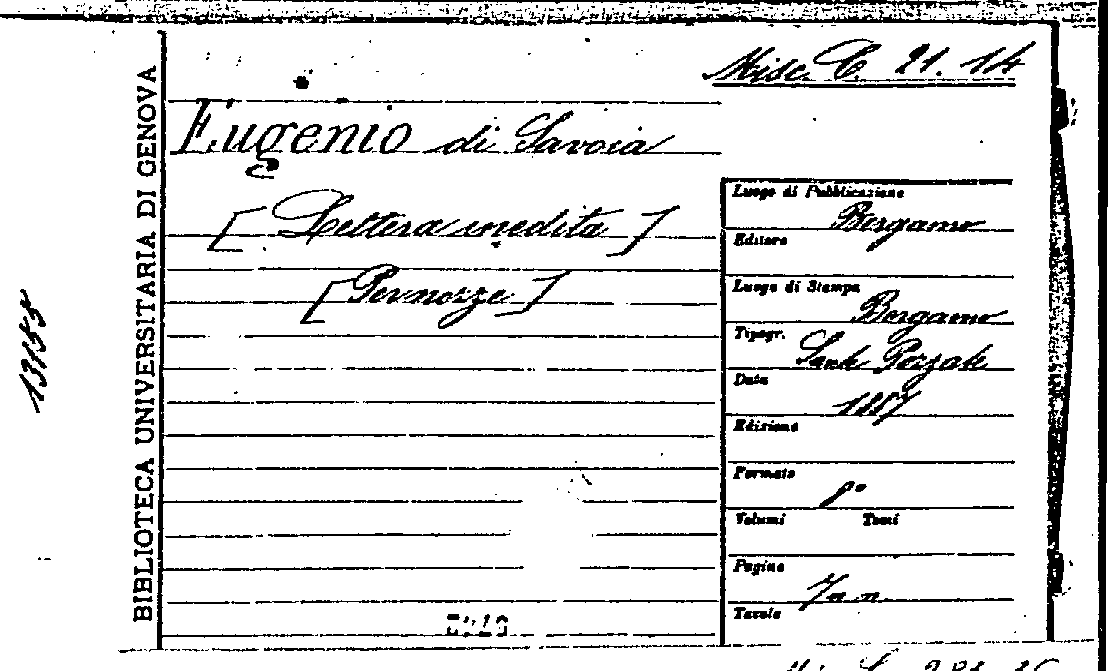 Misc. C. 21. 14
Eugenio di Savoia
[Lettera inedita]
[Per nozze]
Luogo di Pubblicazione
Bergamo
Editore
Luogo di Stampa
Bergamo
Tipogr.
Data
1857
Edizione
Formato
8°
Volumi Tomi
Pagine
7 n. n.
Tavole
BIBLIOTECA UNIVERSITARIA DI GENOVA
13155